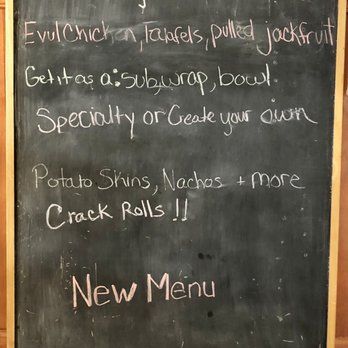 Evul Chicken, Falafels, pulled jackfruit
Get it as a: sub, wrap, bowl
Specialty or Create your own
Potato Skins, Nachos + more
Crack Rolls !!
New Menu